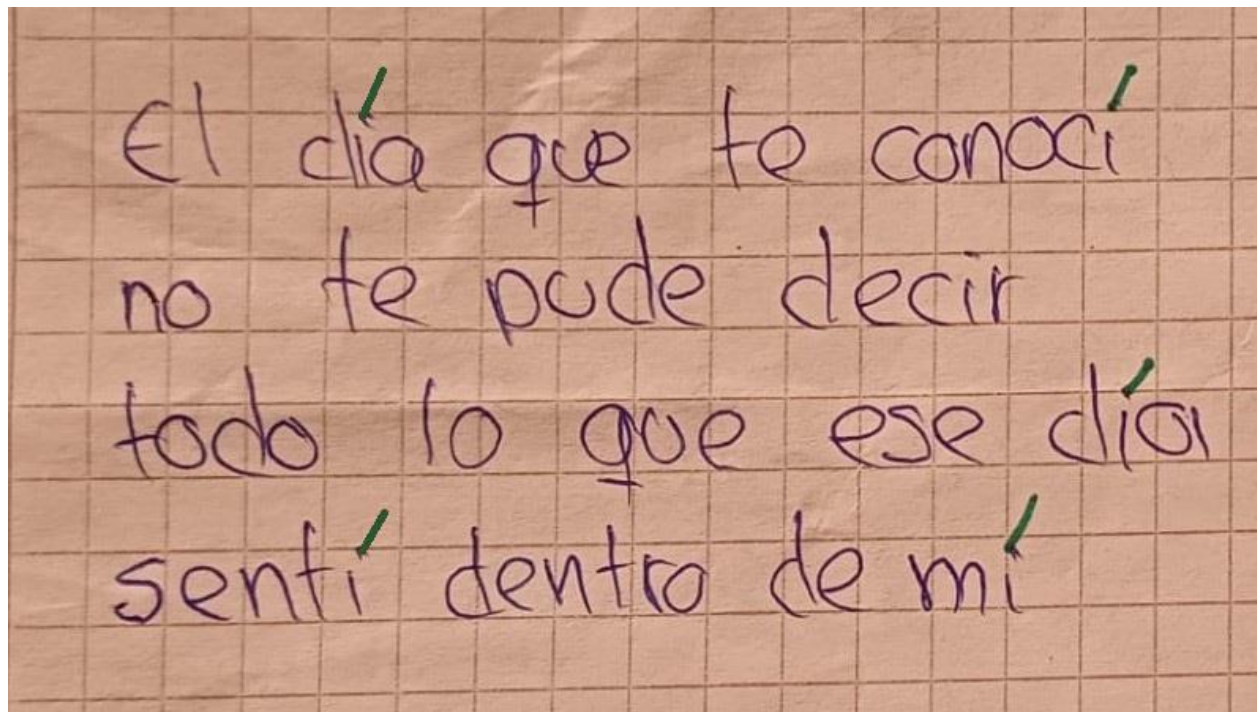 El día que te conocí
no te pude decir
todo lo que ese día
sentí dentro de mí